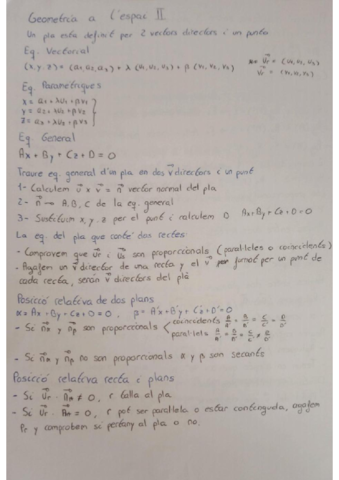 Geometria a l'espai II
Un pla està definit per 2 vectors directors i un punt
Eq. Vectorial
(x, y, z) = (a₁, a₂, a₃) + λ (u₁, u₂, u₃) + β (v₁, v₂, v₃)
Eq. Paramètriques
x = a₁ + λu₁ + βv₁
y = a₂ + λu₂ + βv₂
z = a₃ + λu₃ + βv₃
Eq. General
Ax + By + Cz + D = 0
Traure eq. general d'un pla en dos v⃗ directors i un punt
1- Calculem u⃗ x v⃗ = n⃗ vector normal del pla
2- n⃗ → A, B, C de la eq. general
3- Substituim x, y, z per el punt i calculem D Ax + By + Cz + D = 0
La eq. del pla que conté dos rectes
- Comprovem que u⃗r i u⃗s son proporcionals (paral·leles o coincidents)
- Agafem un v⃗ director de una recta y el v⃗ format per un punt de
cada recta, seràn v⃗ directors del plà
Posicció relativa de dos plans
α = Ax + By + Cz + D = 0, β = A'x + B'y + C'z + D' = 0
- Si n⃗α y n⃗β son proporcionals coincidents A/A' = B/B' = C/C' = D/D'
paral·lels A/A' = B/B' = C/C' ≠ D/D'
- Si n⃗α y n⃗β no son proporcionals α y β son secants
Posicció relativa recta i plans
- Si u⃗r · n⃗π ≠ 0, r talla al pla
- Si u⃗r · n⃗π = 0, r pot ser paral·lela o estar continguda, agafem
Pr y comprobem si pertany al pla o no.